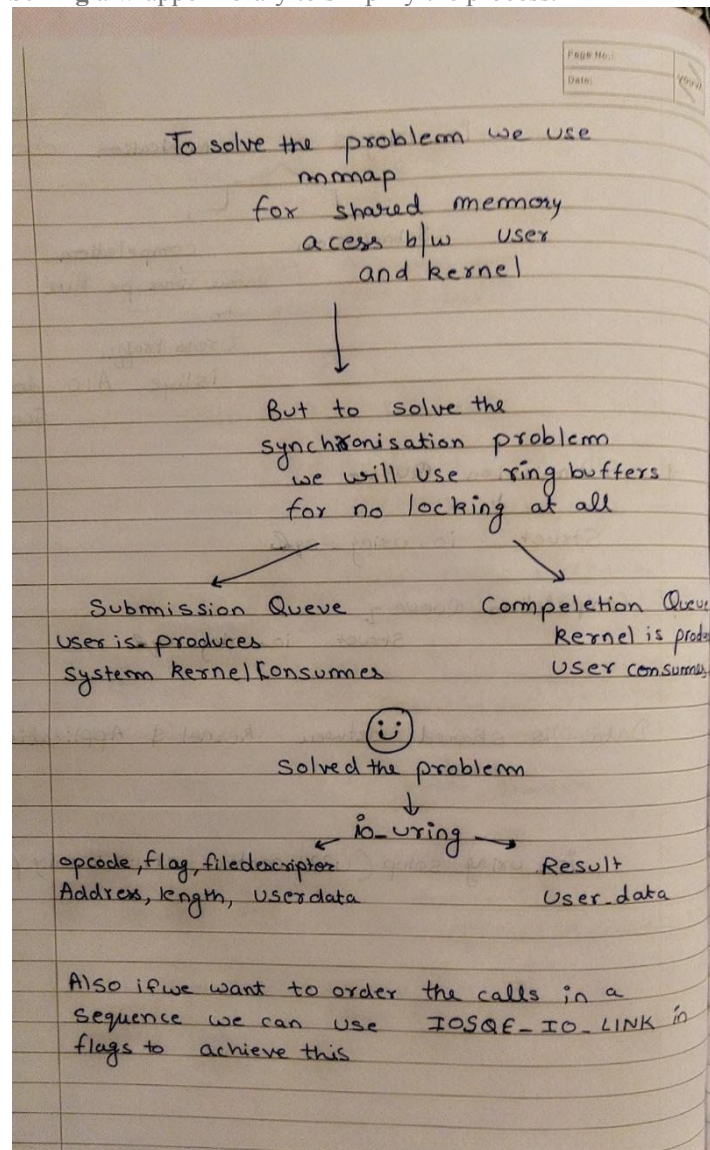 To solve the problem we use
mmap
for shared memory
acess b/w user
and kernel
But to solve the
synchronisation problem
we will use ring buffers
for no locking at all
Submission Queue
user is produces
system kernel consumes
Compeletion Queue
kernel is produ
user consumes
Solved the problem
io_uring
opcode, flag, filedescriptor
Address, length, userdata
Result
User_data
Also if we want to order the calls in a
sequence we can use IOSQE_IO_LINK in
flags to achieve this
Page No.:
Date: